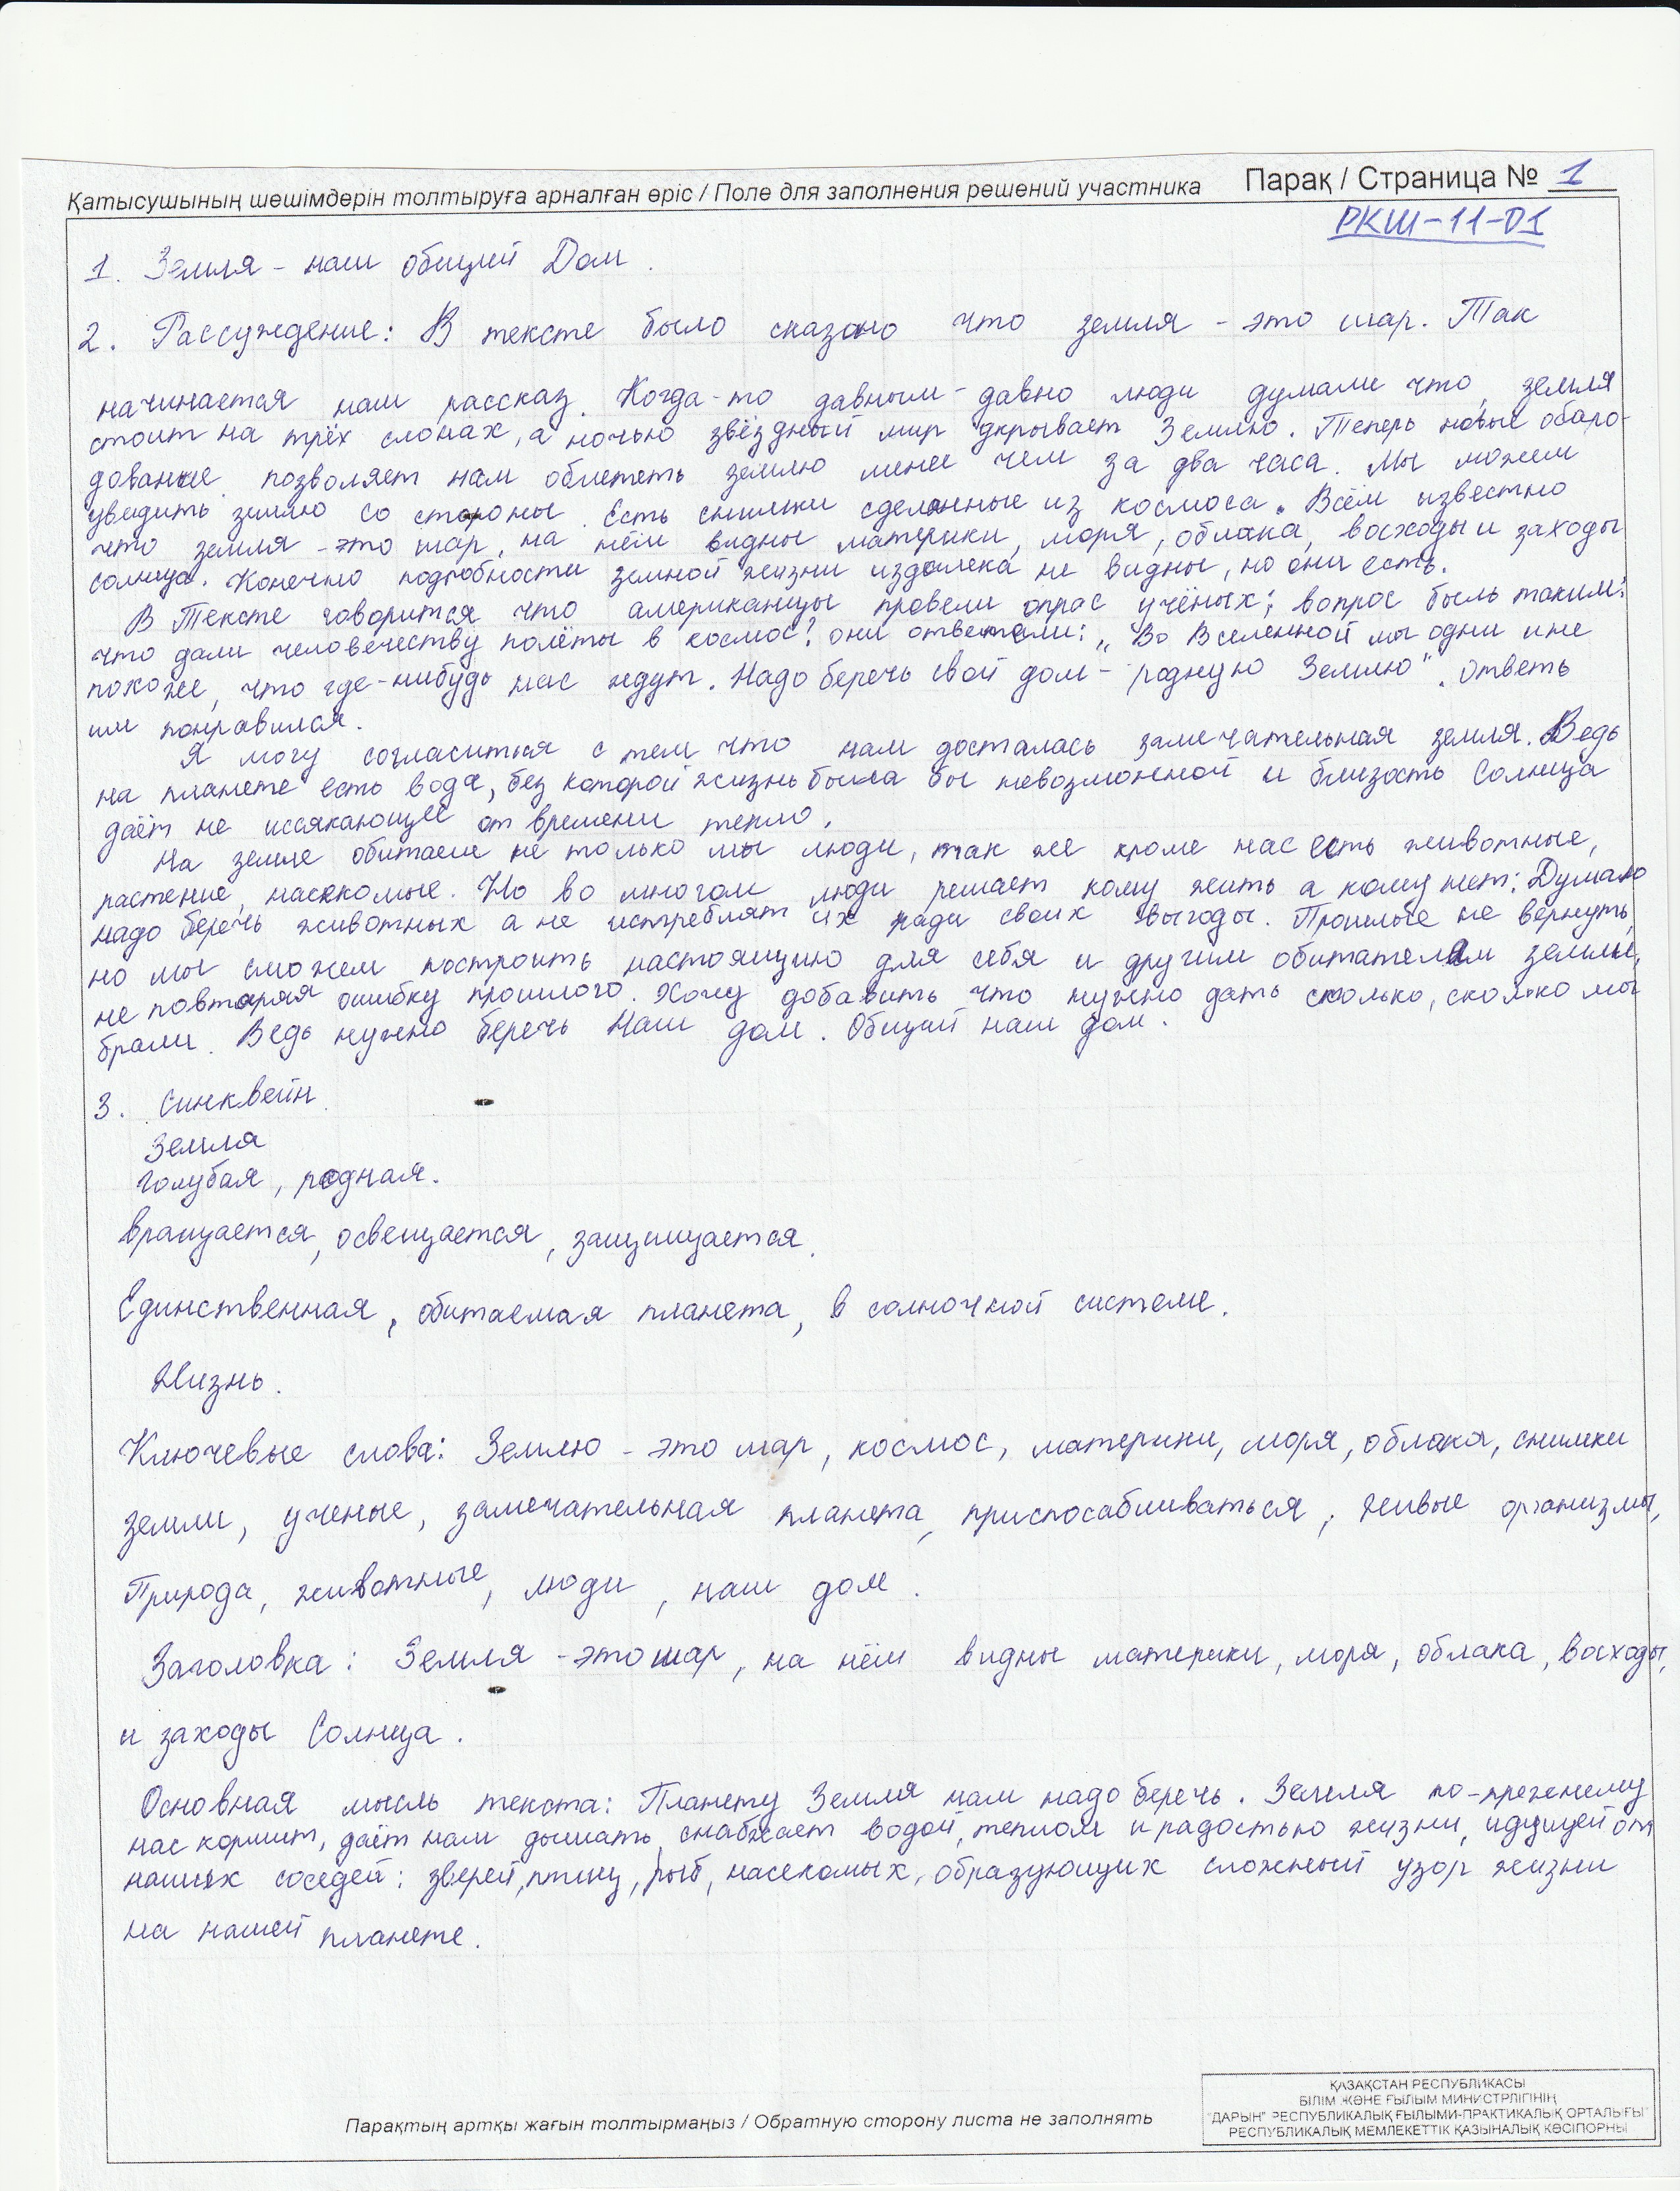 Қатысушының шешімдерін толтыруға арналған өріс / Поле для заполнения решений участника
Парақ / Страница № 1
РКШ-11-01
1. Земля - наш общий Дом.
2. Рассуждение: В тексте было сказано что земля - это шар. Так
начинается наш рассказ. Когда-то давным-давно люди думали что, земля
стоит на трёх слонах, а ночью звёздный мир укрывает Землю. Теперь новые обаро-
дование позволяет нам облететь землю менее чем за два часа. Мы можем
увидить землю со стороны. Есть снимки сделанные из космоса. Всем известно
что земля - это шар, на нём видны материки, моря, облака, восходы и заходы
солнца. Конечно подробности земной жизни издалека не видны, но они есть.
В Тексте говорится что американцы провели опрас учёных; вопрос быль таким:
что дали человечеству полёты в космос? они ответели: „Во Вселенной мы одни и не
похоже, что где-нибудь нас ждут. Надо беречь свой дом - родную Землю". ответь
им понравился.
Я могу согласиться с тем что нам досталась замечательная земля. Ведь
на планете есть вода, без которой жизнь была бы невозможной и близость Солнца
даёт не иссякающее от времени тепло.
На земле обитаем не только мы люди, так же кроме нас есть животные,
растение, насекомые. Но во многом люди решает кому жить а кому нет: Думаю
надо беречь животных а не истреблят их ради своих выгоды. Прошлые не вернуть,
но мы сможем построить настоящую для себя и другим обитателям земли,
не повторяя ошибку прошлого. Хочу добавить что нужно дать столько, сколько мы
брали. Ведь нужно беречь Наш дом. Общий наш дом.
3. Синквейн.
Земля
Голубая, родная.
вращается, освещается, защищается.
Единственная, обитаемая планета, в солночной системе.
Жизнь.
Ключевые слова: Землю - это шар, космос, материки, моря, облака, снимки
земли, ученые, замечательная планета, приспосабливаться, живые организмы,
Природа, животные, люди, наш дом.
Заголовка: Земля - это шар, на нём видны материки, моря, облака, восходы,
и заходы Солнца.
Основная мысль текста: Планету Земля нам надо беречь. Земля по-прежнему
нас кормит, даёт нам дышать, снабжает водой, теплом и радостью жизни, идущей от
наших соседей: зверей, птиц, рыб, насекомых, образующих сложный узор жизни
на нашей планете.
Парақтың артқы жағын толтырмаңыз / Обратную сторону листа не заполнять
ҚАЗАҚСТАН РЕСПУБЛИКАСЫ
БІЛІМ ЖӘНЕ ҒЫЛЫМ МИНИСТРЛІГІНІҢ
"ДАРЫН" РЕСПУБЛИКАЛЫҚ ҒЫЛЫМИ-ПРАКТИКАЛЫҚ ОРТАЛЫҒЫ
РЕСПУБЛИКАЛЫҚ МЕМЛЕКЕТТІК ҚАЗЫНАЛЫҚ КӘСІПОРНЫ